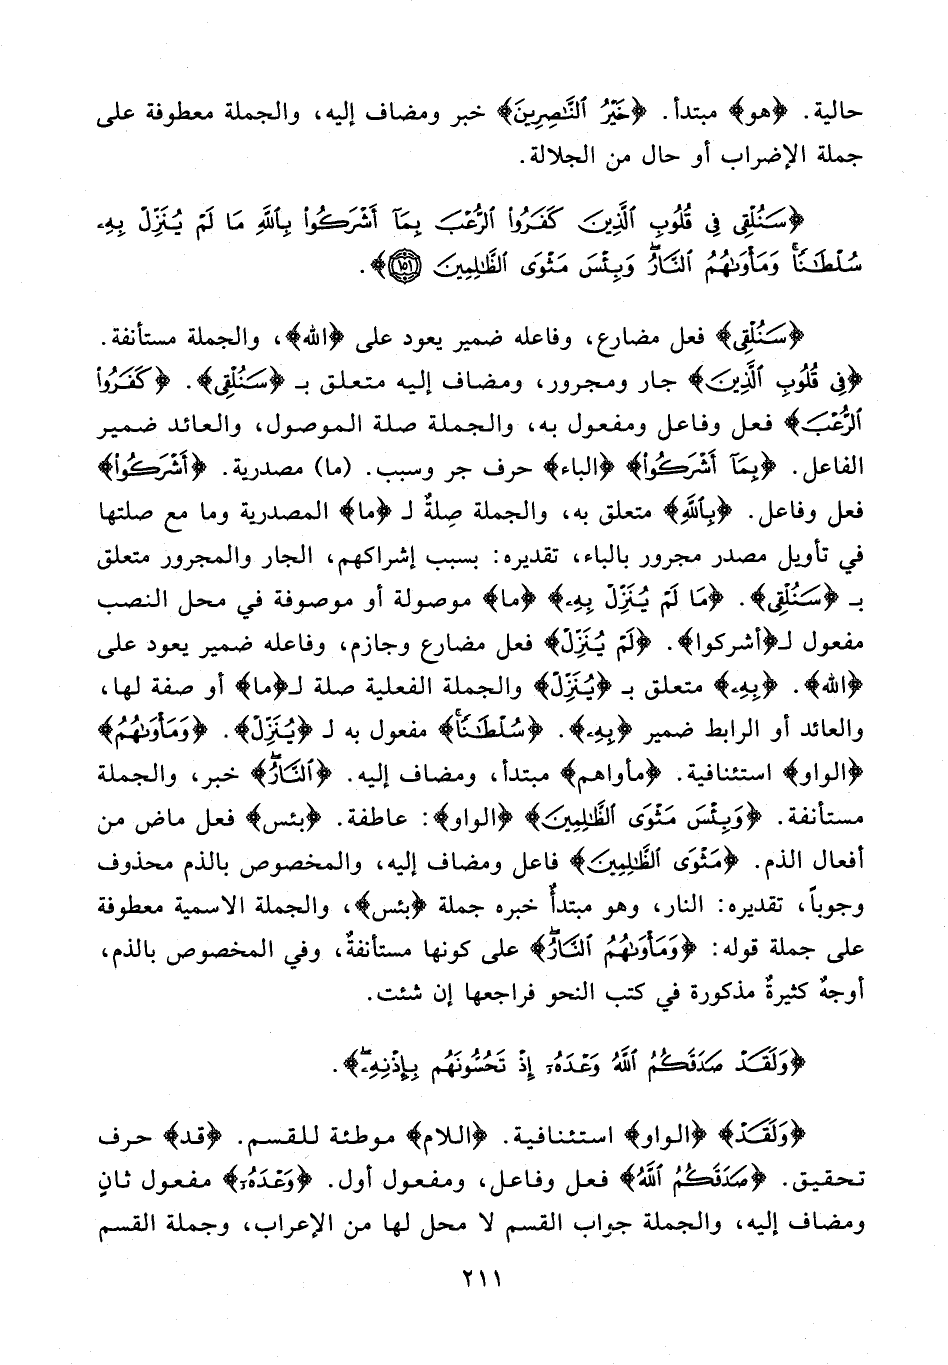 حالية. ﴿هو﴾ مبتدأ. ﴿خَيْرُ ٱلنَّٰصِرِينَ﴾ خبر ومضاف إليه، والجملة معطوفة على
جملة الإضراب أو حال من الجلالة.
﴿سَنُلْقِى فِى قُلُوبِ ٱلَّذِينَ كَفَرُوا۟ ٱلرُّعْبَ بِمَآ أَشْرَكُوا۟ بِٱللَّهِ مَا لَمْ يُنَزِّلْ بِهِۦ
سُلْطَٰنًا ۖ وَمَأْوَىٰهُمُ ٱلنَّارُ ۖ وَبِئْسَ مَثْوَى ٱلظَّٰلِمِينَ ١٥١﴾.
﴿سَنُلْقِى﴾ فعل مضارع، وفاعله ضمير يعود على ﴿الله﴾، والجملة مستأنفة.
﴿فِى قُلُوبِ ٱلَّذِينَ﴾ جار ومجرور، ومضاف إليه متعلق بـ ﴿سَنُلْقِى﴾. ﴿كَفَرُوا۟
ٱلرُّعْبَ﴾ فعل وفاعل ومفعول به، والجملة صلة الموصول، والعائد ضمير
الفاعل. ﴿بِمَآ أَشْرَكُوا۟﴾ ﴿الباء﴾ حرف جر وسبب. (ما) مصدرية. ﴿أَشْرَكُوا۟﴾
فعل وفاعل. ﴿بِٱللَّهِ﴾ متعلق به، والجملة صِلةٌ لـ ﴿ما﴾ المصدرية وما مع صلتها
في تأويل مصدر مجرور بالباء، تقديره: بسبب إشراكهم، الجار والمجرور متعلق
بـ ﴿سَنُلْقِى﴾. ﴿مَا لَمْ يُنَزِّلْ بِهِۦ﴾ ﴿ما﴾ موصولة أو موصوفة في محل النصب
مفعول لـ﴿أشركوا﴾. ﴿لَمْ يُنَزِّلْ﴾ فعل مضارع وجازم، وفاعله ضمير يعود على
﴿الله﴾. ﴿بِهِۦ﴾ متعلق بـ ﴿يُنَزِّلْ﴾ والجملة الفعلية صلة لـ﴿ما﴾ أو صفة لها،
والعائد أو الرابط ضمير ﴿بِهِۦ﴾. ﴿سُلْطَٰنًا﴾ مفعول به لـ ﴿يُنَزِّلْ﴾. ﴿وَمَأْوَىٰهُمُ﴾
﴿الواو﴾ استئنافية. ﴿مأواهم﴾ مبتدأ، ومضاف إليه. ﴿ٱلنَّارُ ۖ﴾ خبر، والجملة
مستأنفة. ﴿وَبِئْسَ مَثْوَى ٱلظَّٰلِمِينَ﴾ ﴿الواو﴾: عاطفة. ﴿بئس﴾ فعل ماض من
أفعال الذم. ﴿مَثْوَى ٱلظَّٰلِمِينَ﴾ فاعل ومضاف إليه، والمخصوص بالذم محذوف
وجوباً، تقديره: النار، وهو مبتدأٌ خبره جملة ﴿بئس﴾، والجملة الاسمية معطوفة
على جملة قوله: ﴿وَمَأْوَىٰهُمُ ٱلنَّارُ ۖ﴾ على كونها مستأنفةٌ، وفي المخصوص بالذم،
أوجهٌ كثيرةٌ مذكورة في كتب النحو فراجعها إن شئت.
﴿وَلَقَدْ صَدَقَكُمُ ٱللَّهُ وَعْدَهُۥٓ إِذْ تَحُسُّونَهُم بِإِذْنِهِۦ ۖ﴾.
﴿وَلَقَدْ﴾ ﴿الواو﴾ استئنافية. ﴿اللام﴾ موطئة للقسم. ﴿قد﴾ حرف
تحقيق. ﴿صَدَقَكُمُ ٱللَّهُ﴾ فعل وفاعل، ومفعول أول. ﴿وَعْدَهُۥٓ﴾ مفعول ثانٍ
ومضاف إليه، والجملة جواب القسم لا محل لها من الإعراب، وجملة القسم
٢١١